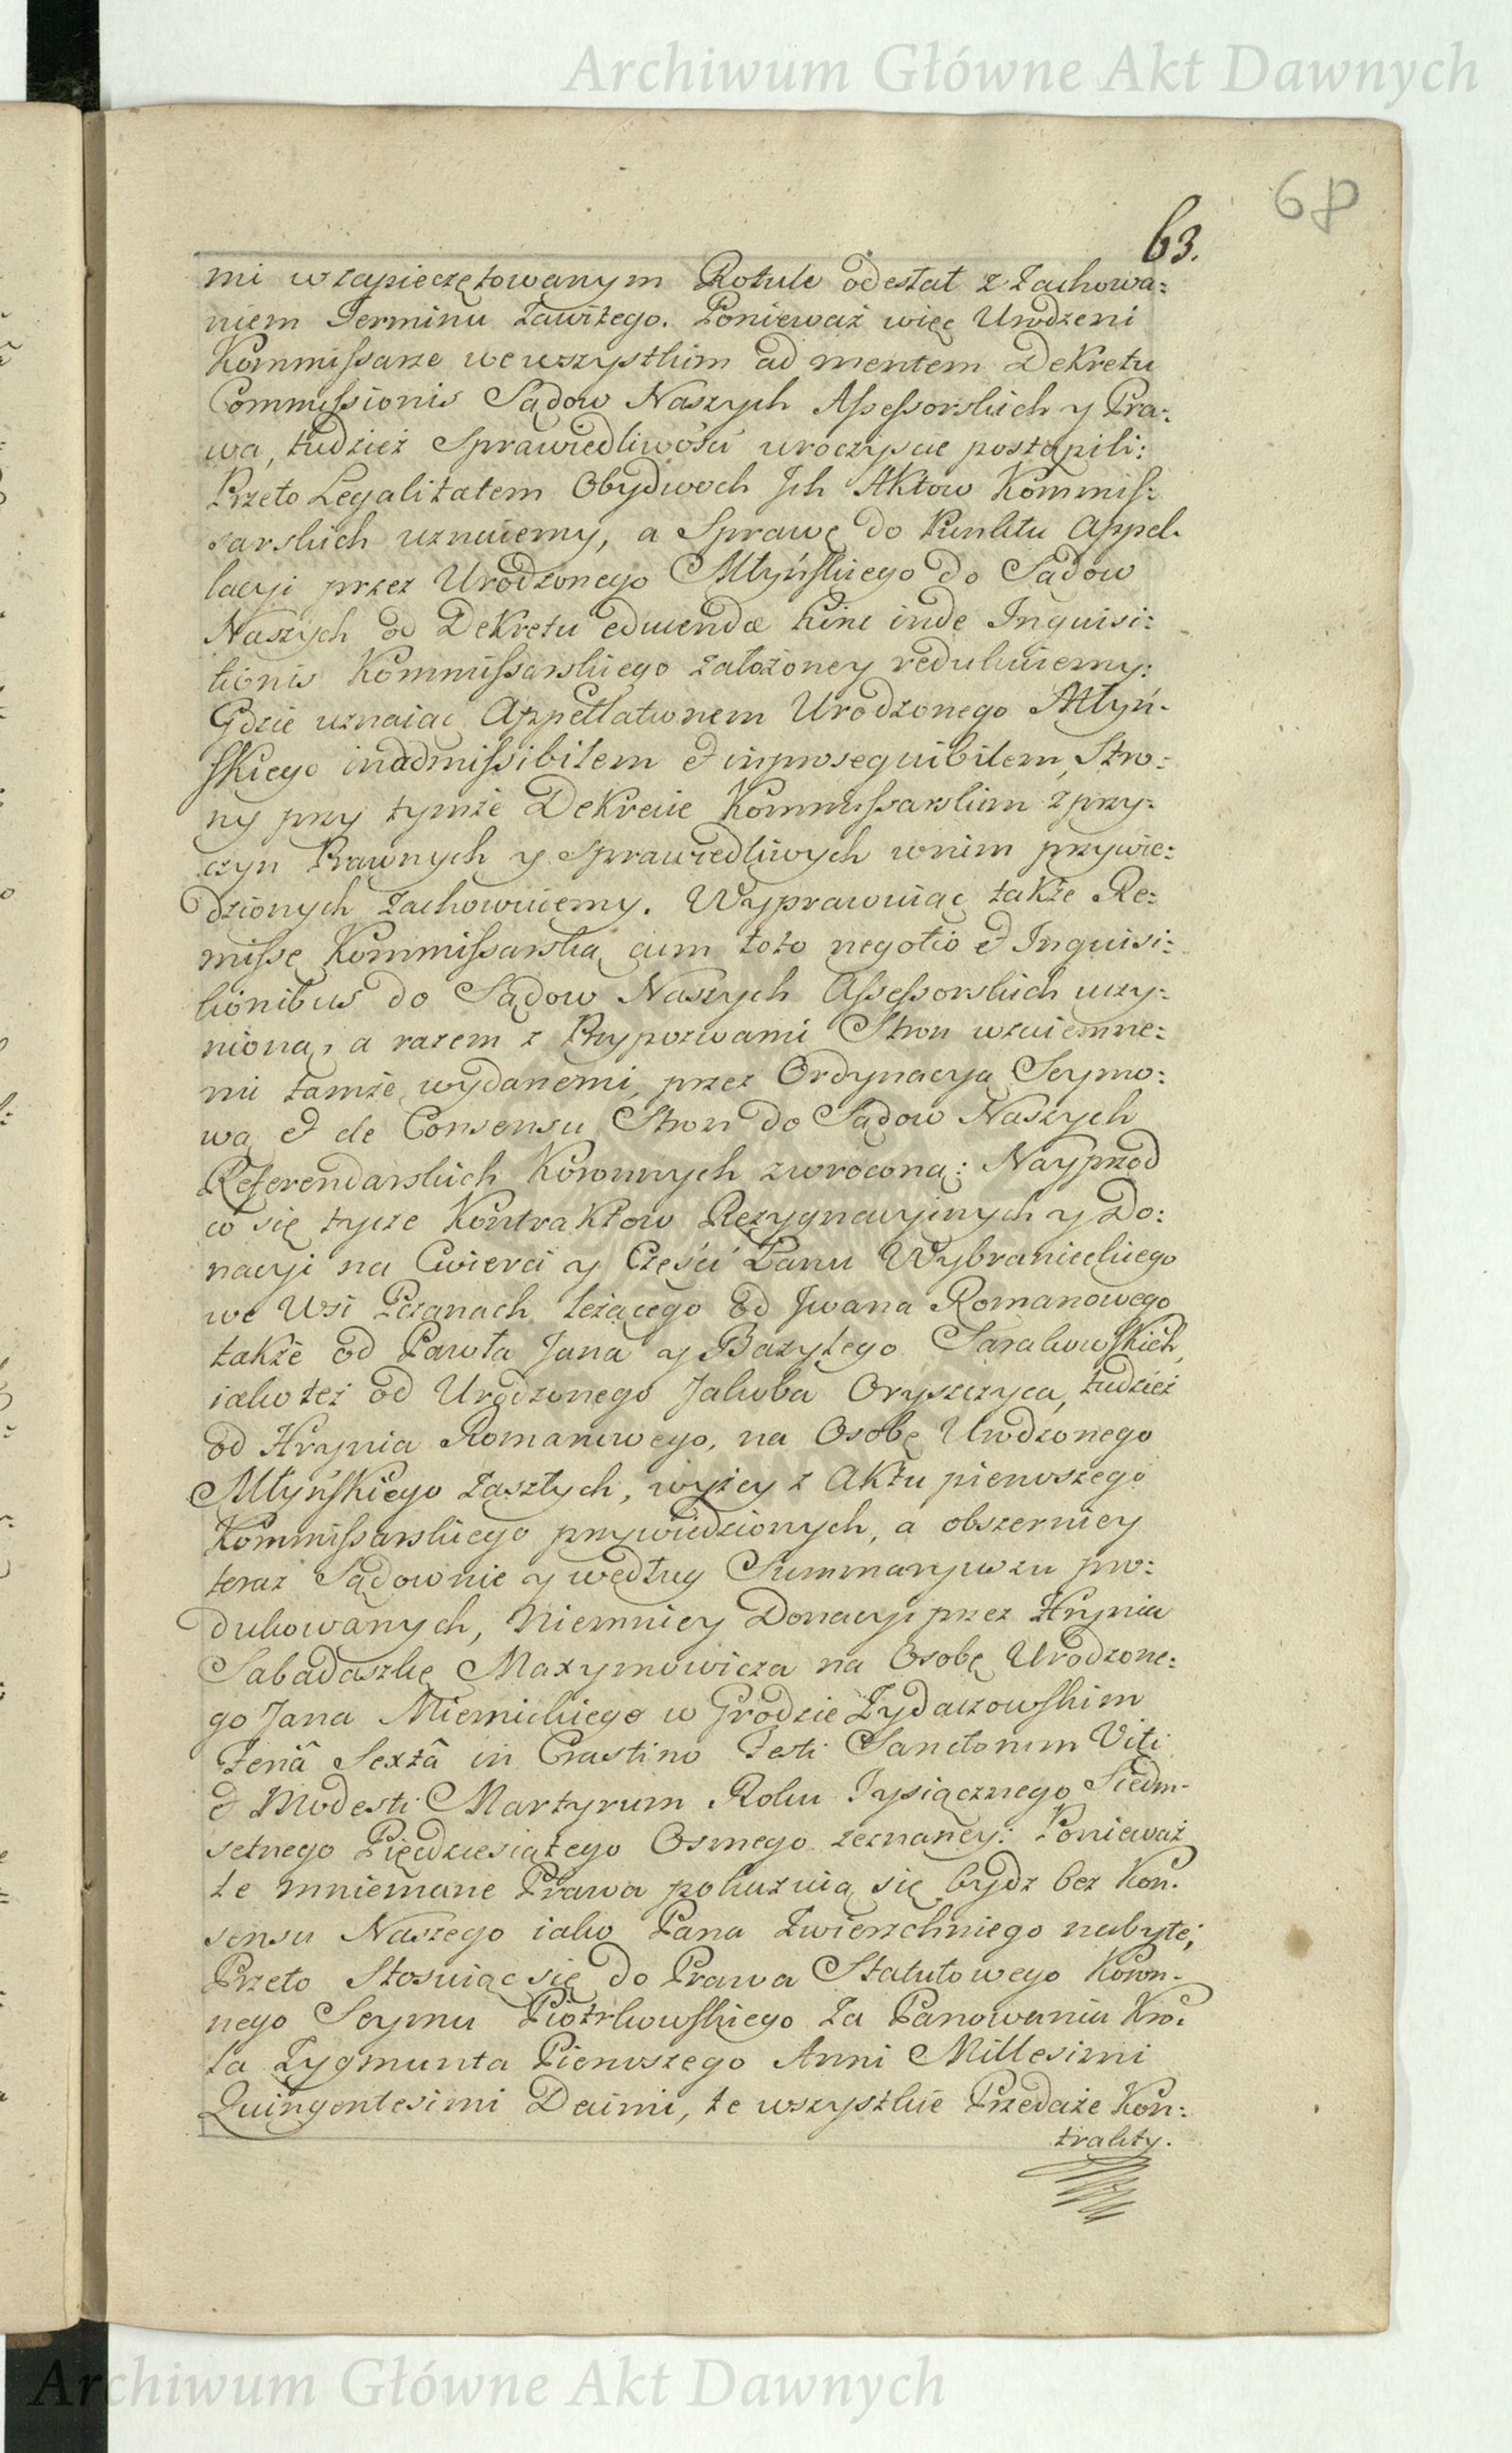 Archiwum Główne Akt Dawnych
68
63.
mi w zapieczętowanym Rotule odesłał z Zachowa:
niem Terminu Zawitego. Ponieważ więc Urodzeni
Kommissarze we wszystkim ad mentem Dekretu
Commissionis Sądow Naszych Assessorskich y Pra:
wa, tudzież Sprawiedliwości uroczyscie postąpili:
Przeto Legalitatem Obydwoch Ich Aktow Kommis:
sarskich uznaiemy, a Sprawę do Punktu Appel-
lacyi przez Urodzonego Młyńskiego do Sądow
Naszych od Dekretu educendæ hinc inde Inquisi:
tionis Kommissarskiego założoney redukuiemy:
Gdzie uznaiąc Appellationem Urodzonego Młyń-
skiego inadmissibilem et inprosequibilem, Stro:
ny przy tymże Dekrecie Kommissarskim z przy:
czyn Prawnych y sprawiedliwych w nim przywie:
dzionych zachowuiemy. Wyprawuiąc także Re:
missę Kommissarską cum toto negotio et Inquisi:
tionibus do Sądow Naszych Assessorskich uczy:
nioną, a razem z Przypozwami Stron wzaiemne:
mi tamże wydanemi, przez Ordynacyą Seymo:
wą et de Consensu Stron do Sądow Naszych
Referendarskich Koronnych zwroconą: Nayprzod
co się tycze Kontraktow Rezygnacyinych y Do:
nacyi na Cwierci y Części Łanu Wybranieckiego
we Wsi Pczanach leżącego od Iwana Romanowego
także od Pawła Jana y Bazylego Sarakowskich,
iako też od Urodzonego Jakuba Oryszczyca, tudzież
od Hrynia Romanowego, na Osobę Urodzonego
Młyńskiego zaszłych, wyżey z Aktu pierwszego
Kommissarskiego przywiedzionych, a obszerniey
teraz Sądownie y według Summaryuszu pro:
dukowanych, niemniey Donacyi przez Hrynia
Sabadaszkę Maxymowicza na Osobę Urodzone:
go Jana Niemickiego w Grodzie Żydaczowskim
Feriâ Sextâ in Crastino Festi Sanctorum Viti
et Modesti Martyrum Roku Tysiącznego Siedm-
setnego Pięćdziesiątego Osmego zeznaney: Ponieważ
te mniemane Prawa pokazuią się bydz bez Kon-
sensu Naszego iako Pana Zwierzchniego nabyte;
Przeto Stosuiąc się do Prawa Statutowego Koron-
nego Seymu Piotrkowskiego za Panowania Kró-
la Zygmunta Pierwszego Anni Millesimi
Quingentesimi Decimi, te wszystkie Przedaże Kon:
trakty.
Archiwum Główne Akt Dawnych